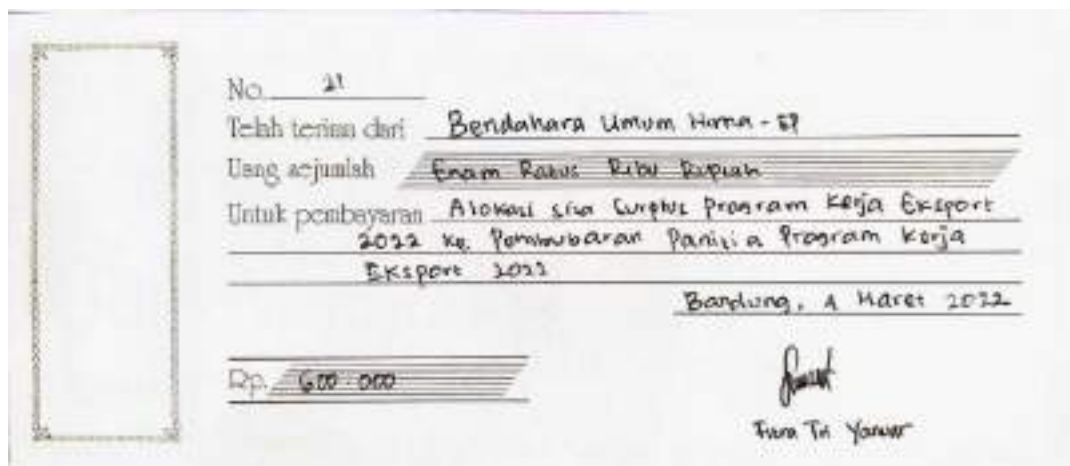 No. 21
Telah terima dari Bendahara Umum Hima-EP
Uang sejumlah Enam Ratus Ribu Rupiah
Untuk pembayaran Alokasi sisa Surplus Program Kerja Eksport
2022 ke Pembubaran Panitia Program Kerja
Eksport 2022
Bandung, Maret 2022
Rp. 600.000
Tri